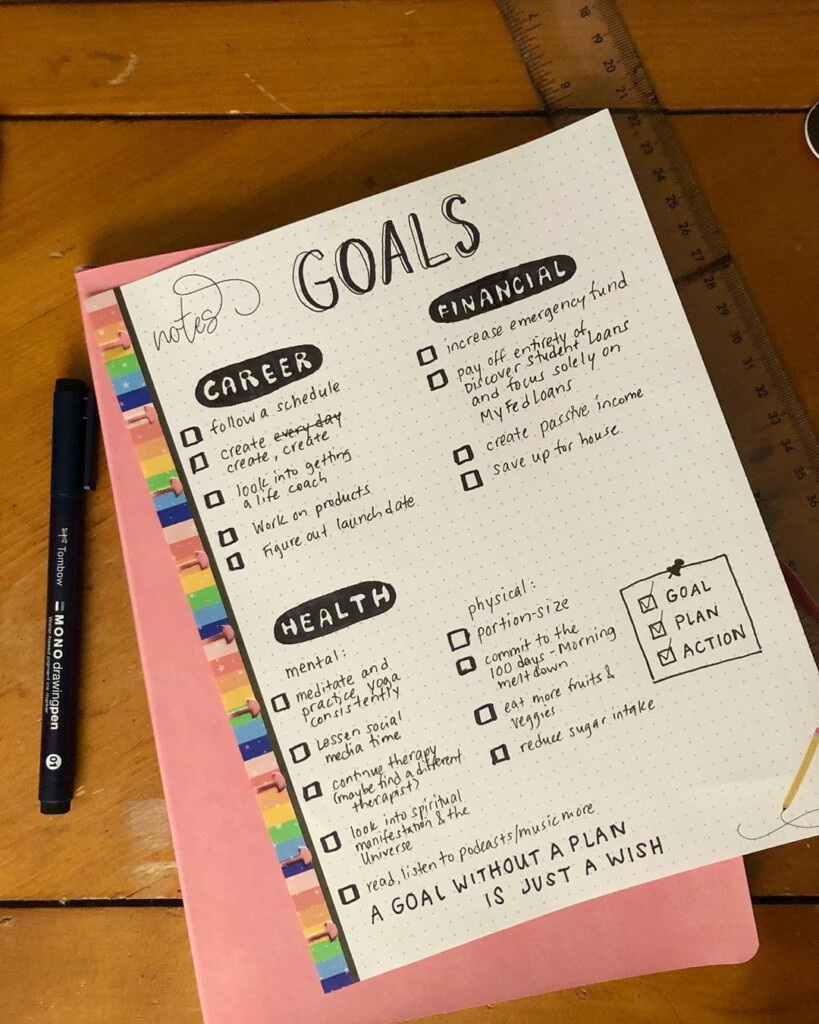 GOALS
notes
CAREER
follow a schedule
create every day
create, create
look into getting
a life coach
Work on products
Figure out launch date
FINANCIAL
increase emergency fund
pay off entirety of
Discover student Loans
and focus solely on
MyFedLoans
create passive income
save up for house
HEALTH
mental:
meditate and
practice yoga
consistently
Lessen social
media time
continue therapy
(maybe find a different
therapist)
look into spiritual
manifestation & the
Universe
read, listen to podcasts/music more
physical:
portion-size
commit to the
100 days - Morning
meltdown
eat more fruits &
veggies
reduce sugar intake
GOAL
PLAN
ACTION
A GOAL WITHOUT A PLAN
IS JUST A WISH
Tombow
MONO drawingpen
01
18
19
20
21
22
23
24
25
26
27
28
29
30
31
32
33
34
35
36